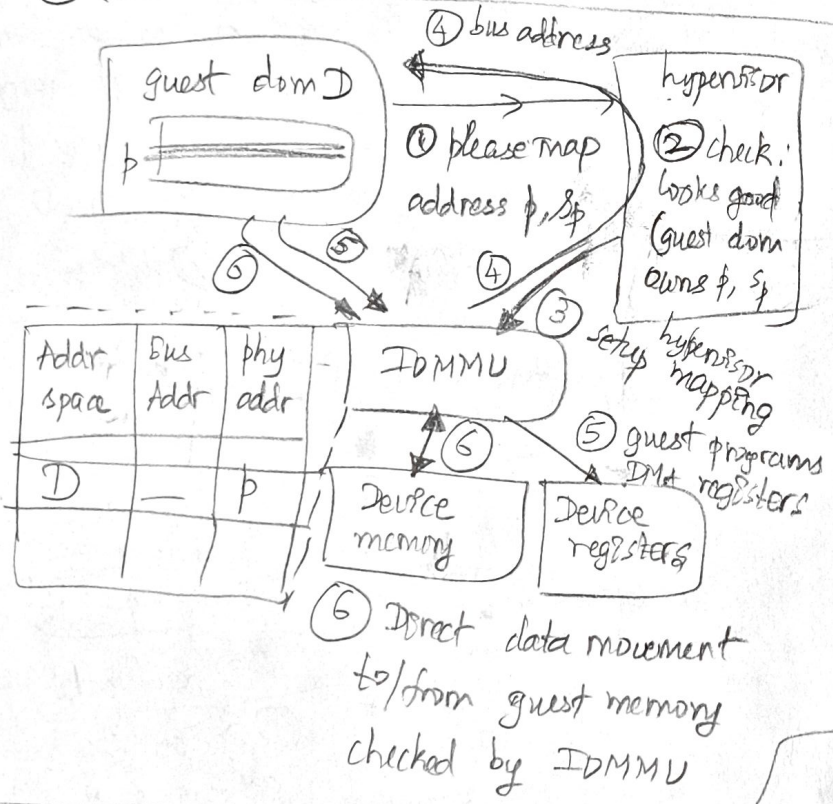 ④ bus address
guest dom D
p
hypervisor
① please map
address p, sp
② check:
looks good
(guest dom
owns p, sp
⑥
⑤
④
③
hypervisor
setup mapping
Addr
space
Bus
Addr
phy
addr
D
—
p
IOMMU
⑥
⑤ guest programs
DMA registers
Device
memory
Device
registers
⑥ Direct data movement
to/from guest memory
checked by IOMMU